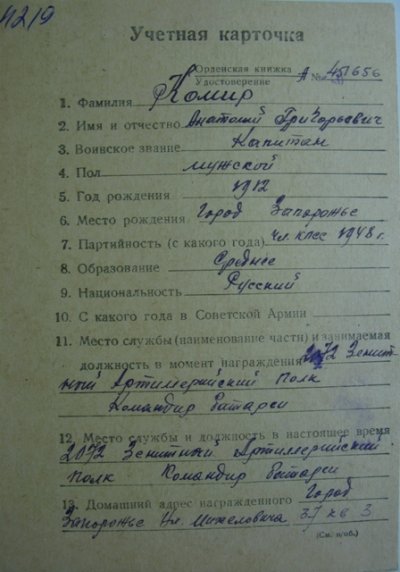 4219
Учетная карточка
Орденская книжка
Удостоверение А № 451656
1. Фамилия Комир
2. Имя и отчество Анатолий Григорьевич
3. Воинское звание Капитан
4. Пол мужской
5. Год рождения 1912
6. Место рождения Город Запорожье
7. Партийность (с какого года) 1948 г.
8. Образование Среднее
9. Национальность Русский
10. С какого года в Советской Армии
11. Место службы (наименование части) и занимаемая
должность в момент награждения 2072 Зенит-
ный Артиллерийский Полк
Командир Батареи
12. Место службы и должность в настоящее время
2072 Зенитный Артиллерийский
Полк Командир Батареи
13. Домашний адрес награжденного Город
Запорожье Ул. 37 кв 3
(См. н/об.)